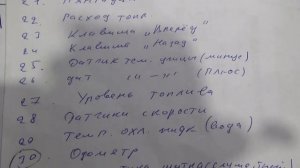 22. Расход топл
23 Клавиша "Вперёд"
24 Клавиша "Назад"
25. Датчик тем. (минус)
26 дат. — " — " (Плюс)
27 Уровень топлива
28 Датчики скорости
29 Темп. охл. жидк (вода)
30 Одометр